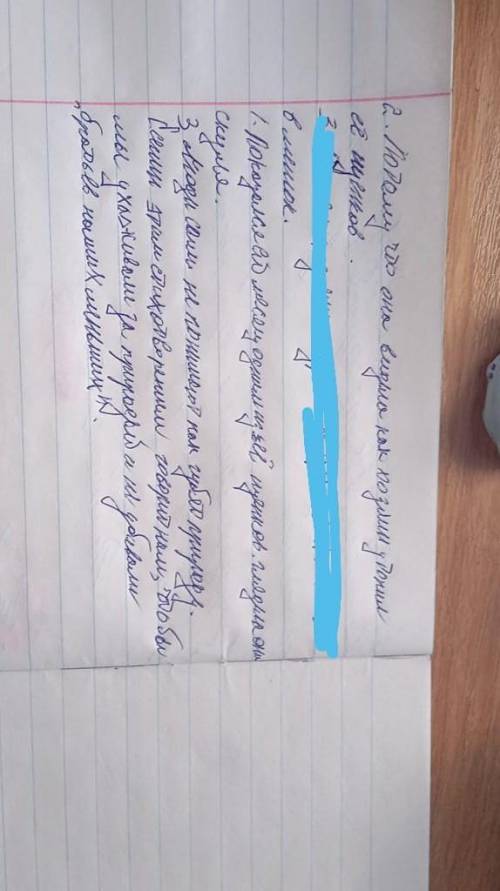 2. Потому что она видела как хозяин утопил
её щенков.
в мешок.
1. Показался ей месяц одним из её щенков. глядела она
скуля.
3 люди сами не понимают как губят природу.
Есенин этим стихотворением говорит нам, чтобы
мы ухаживали за природой и не убивали
братьев наших меньших.